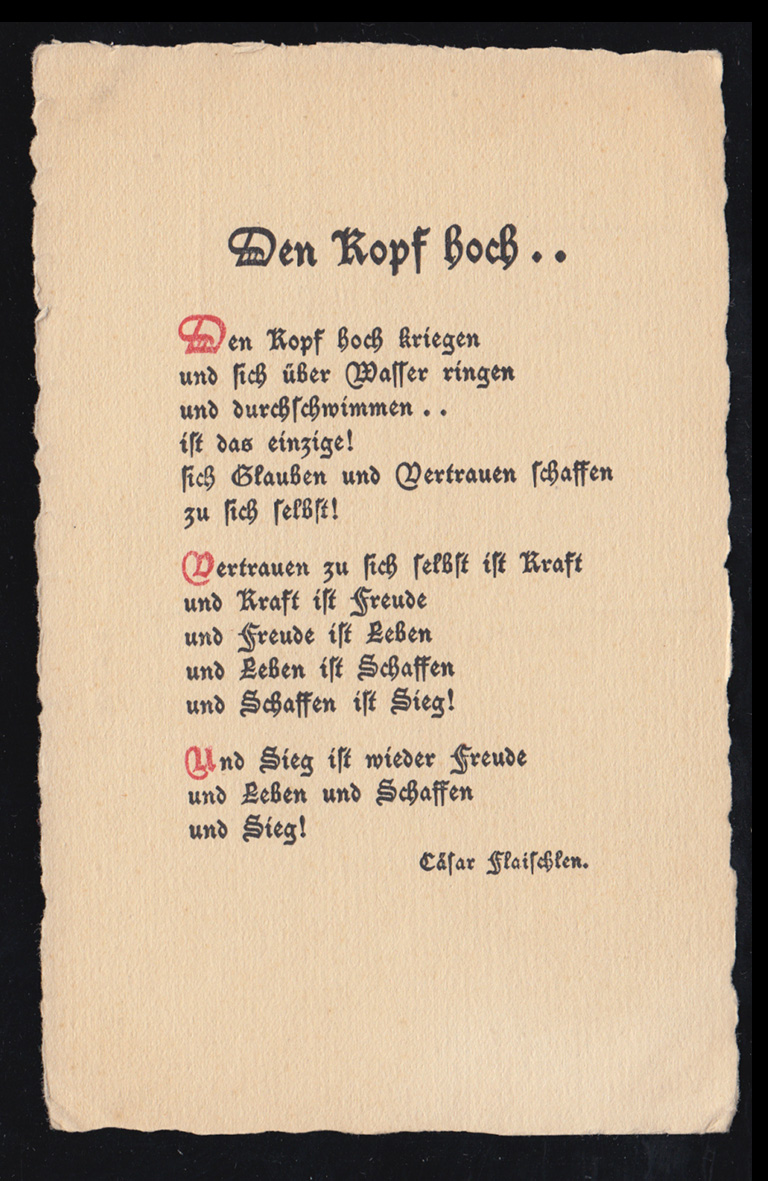 Den Kopf hoch . .
Den Kopf hoch kriegen
und sich über Wasser ringen
und durchschwimmen . .
ist das einzige!
sich Glauben und Vertrauen schaffen
zu sich selbst!
Vertrauen zu sich selbst ist Kraft
und Kraft ist Freude
und Freude ist Leben
und Leben ist Schaffen
und Schaffen ist Sieg!
Und Sieg ist wieder Freude
und Leben und Schaffen
und Sieg!
Cäsar Flaischlen.